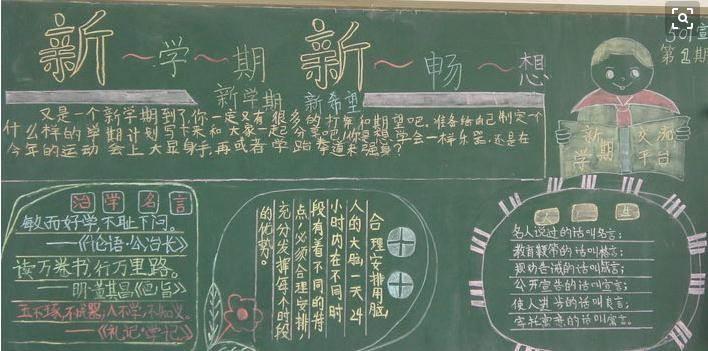 新~学~期 新~畅~想
501宣
第1期
新学期 新希望
又是一个新学期到了,你一定又有很多的打算和期望吧。准备给自己制定一个
什么样的学期计划写下来和大家一起分享吧!你是想学会一样乐器,还是在
今年的运动会上大显身手,再或者学跆拳道来强身?
新学期
交流平台
治学名言
敏而好学,不耻下问。
——《论语·公冶长》
读万卷书,行万里路。
——明·董其昌《画旨》
玉不琢,不成器;人不学,不知义。
——《礼记·学记》
合理安排用脑
人的大脑一天24
小时内在不同时
段有着不同的特
点,必须合理安排,
充分发挥每个时段
的优势。
名人说过的话叫名言;
教育鞭策的话叫箴言;
规劝告诫的话叫
公开宣告的话叫宣言;
使人进步的话叫良言;
含托寓意的话叫寓言。